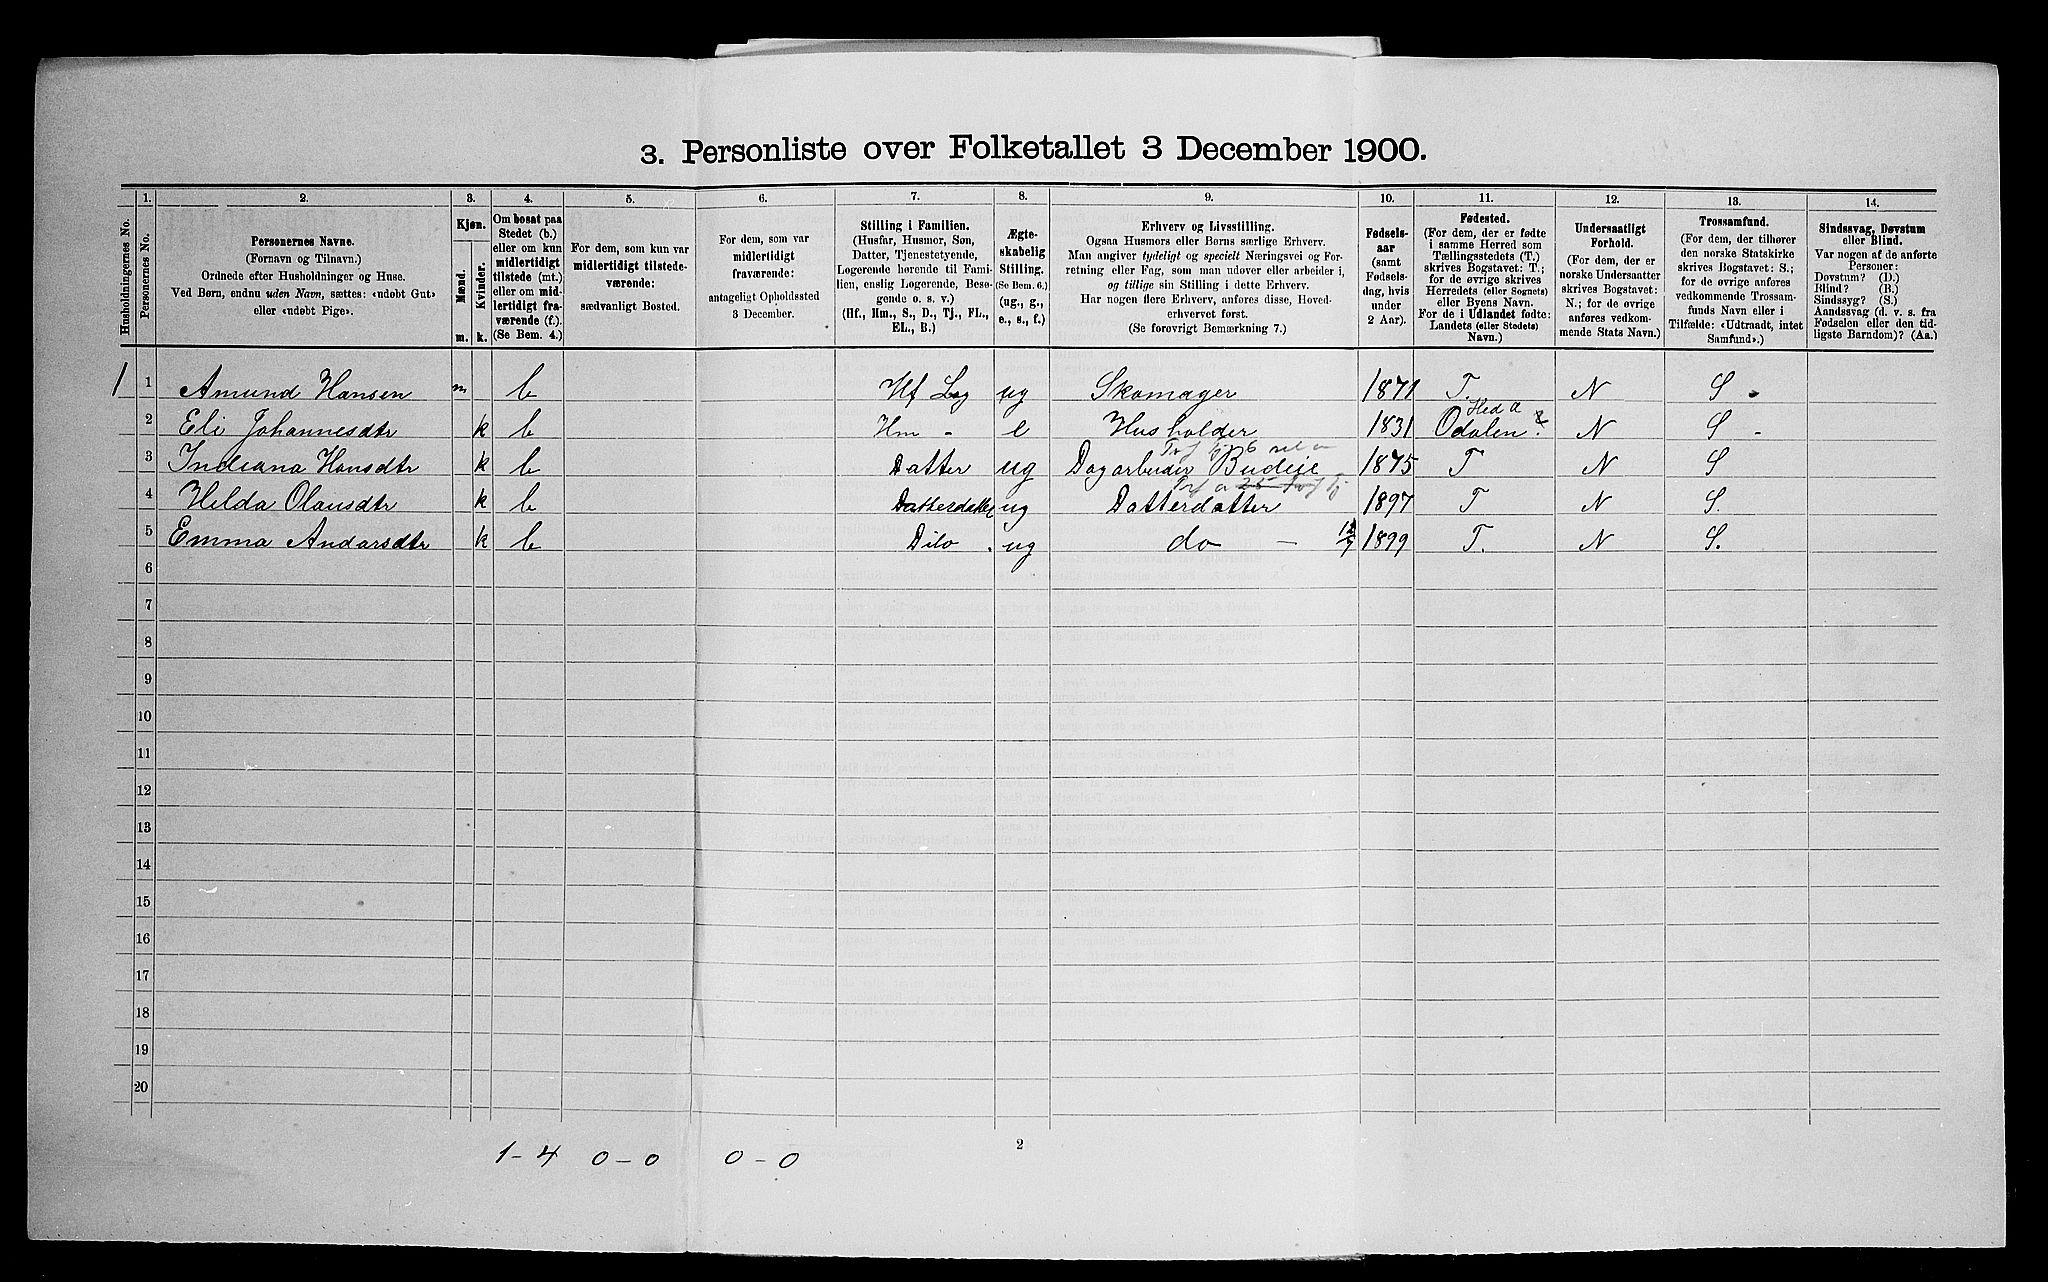 3. Personliste over Folketallet 3 December 1900.
1. 2. 3. 4. 5. 6. 7. 8. 9. 10. 11. 12. 13. 14.
Husholdningernes No.
Personernes No.
Personernes Navne.
(Fornavn og Tilnavn.)
Ordnede efter Husholdninger og Huse.
Ved Børn, endnu uden Navn, sættes: «udøbt Gut»
eller «udøbt Pige».
Kjøn.
Mænd.
Kvinder.
m. k.
Om bosat paa
Stedet (b.)
eller om kun
midlertidigt
tilstede (mt.)
eller om mid-
lertidigt fra-
værende (f.).
(Se Bem. 4.)
For dem, som kun var
midlertidigt tilstede-
værende:
sædvanligt Bosted.
For dem, som var
midlertidigt
fraværende:
antageligt Opholdssted
3 December.
Stilling i Familien.
(Husfar, Husmor, Søn,
Datter, Tjenestetyende,
Logerende hørende til Fami-
lien, enslig Logerende, Besø-
gende o. s. v.)
(Hf., Hm., S., D., Tj., FL.,
EL., B.)
Ægte-
skabelig
Stilling.
(Se Bem. 6.)
(ug., g.,
e., s., f.)
Erhverv og Livsstilling.
Ogsaa Husmors eller Børns særlige Erhverv.
Man angiver tydeligt og specielt Næringsvei og For-
retning eller Fag, som man udøver eller arbeider i,
og tillige sin Stilling i dette Erhverv.
Har nogen flere Erhverv, anføres disse, Hoved-
erhvervet først.
(Se forøvrigt Bemærkning 7.)
Fødsels-
aar
(samt
Fødsels-
dag, hvis
under
2 Aar).
Fødested.
(For dem, der er fødte
i samme Herred som
Tællingsstedets (T.)
skrives Bogstavet: T.;
for de øvrige skrives
Herredets (eller Sognets)
eller Byens Navn.
For de i Udlandet fødte:
Landets (eller Stedets)
Navn.)
Undersaatligt
Forhold.
(For dem, der er
norske Undersaatter
skrives Bogstavet:
N.; for de øvrige
anføres vedkom-
mende Stats Navn.)
Trossamfund.
(For dem, der tilhører
den norske Statskirke
skrives Bogstavet: S.;
for de øvrige anføres
vedkommende Trossam-
funds Navn eller i
Tilfælde: «Udtraadt, intet
Samfund».)
Sindssvag, Døvstum
eller Blind.
Var nogen af de anførte
Personer:
Døvstum? (D.)
Blind? (B.)
Sindssyg? (S.)
Aandssvag (d. v. s. fra
Fødselen eller den tid-
ligste Barndom)? (Aa.)
1 1 Amund Hansen m b Hf Log ug Skomager 1871 T. N S
2 Eli Johannesdtr k b Hm - e Husholder 1831 Odalen N S -
3 Indiana Hansdtr k b Datter ug Dagarbeider Budeie 1875 T N S
4 Helda Olausdtr k b Datterdatter ug Datterdatter 1897 T N S.
5 Emma Andarsdtr k b Dito ug do - 12/7 1899 T. N S.
6
7
8
9
10
11
12
13
14
15
16
17
18
19
20
2
1-4 0-0 0-0